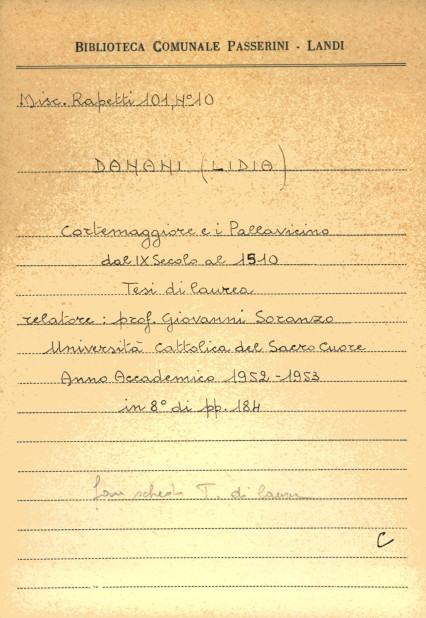 BIBLIOTECA COMUNALE PASSERINI - LANDI
Misc. Rapetti 101, N° 10
DANANI (LIDIA)
Cortemaggiore e i Pallavicino
dal IX Secolo al 1510
Tesi di laurea
relatore : prof. Giovanni Soranzo
Università Cattolica del Sacro Cuore
Anno Accademico 1952-1953
in 8° di pp. 184
scheda T. di laurea
C